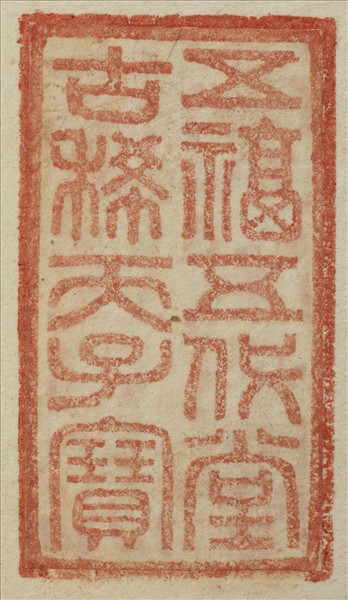 五福五代堂
古稀天子寶